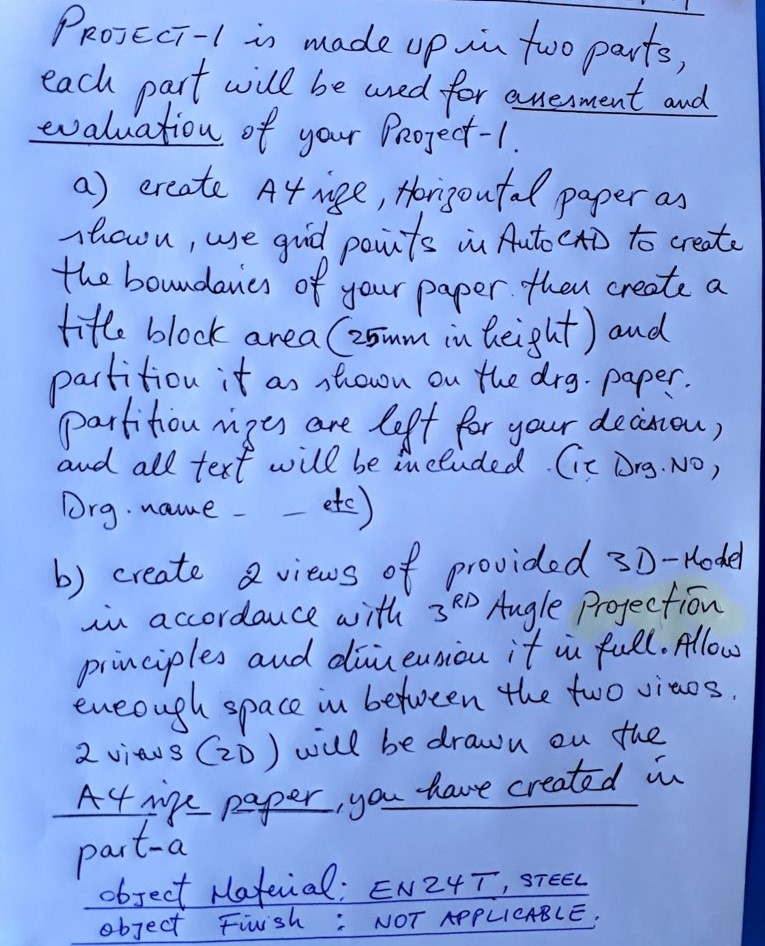 PROJECT-1 is made up in two parts,
each part will be used for assesment and
evaluation of your PROJECT-1.
a) create A4 size, Horizontal paper as
shown, use grid points in AutoCAD to create
the boundaries of your paper. then create a
title block area (25mm in height) and
partition it as shown on the drg. paper.
partition sizes are left for your decision,
and all text will be included. (ie Drg. NO,
Drg. name - - etc)
b) create 2 views of provided 3D-Model
in accordance with 3RD Angle Projection
principles and dimension it in full. Allow
eneough space in between the two views.
2 views (2D) will be drawn on the
A4 size paper, you have created in
part-a
object Material: EN24T, STEEL
object Finish : NOT APPLICABLE.